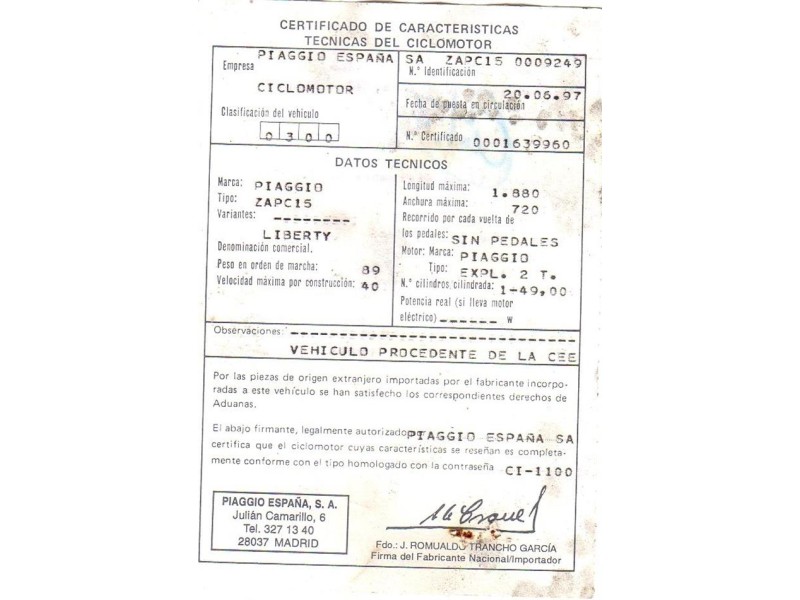 CERTIFICADO DE CARACTERISTICAS
TECNICAS DEL CICLOMOTOR
PIAGGIO ESPAÑA SA ZAPC15 0009249
Empresa
N.º Identificación
CICLOMOTOR
20.06.97
Fecha de puesta en circulación
Clasificación del vehículo
0300
N.º Certificado 0001639960
DATOS TECNICOS
Marca: PIAGGIO
Tipo: ZAPC15
Variantes: --------
LIBERTY
Denominación comercial.
Peso en orden de marcha: 89
Velocidad máxima por construcción: 40
Longitud máxima: 1.880
Anchura máxima: 720
Recorrido por cada vuelta de
los pedales: SIN PEDALES
Motor: Marca: PIAGGIO
Tipo: EXPL. 2 T.
N.º cilindros cilindrada: 1-49,00
Potencia real (si lleva motor
eléctrico) ------ W
Observaciones: ------------------------------
VEHICULO PROCEDENTE DE LA CEE
Por las piezas de origen extranjero importadas por el fabricante incorpo-
radas a este vehículo se han satisfecho los correspondientes derechos de
Aduanas.
El abajo firmante, legalmente autorizado PIAGGIO ESPAÑA SA
certifica que el ciclomotor cuyas características se reseñan es completa-
mente conforme con el tipo homologado con la contraseña CI-1100
PIAGGIO ESPAÑA, S. A.
Julián Camarillo, 6
Tel. 327 13 40
28037 MADRID
Fdo.: J. ROMUALDO TRANCHO GARCÍA
Firma del Fabricante Nacional/Importador